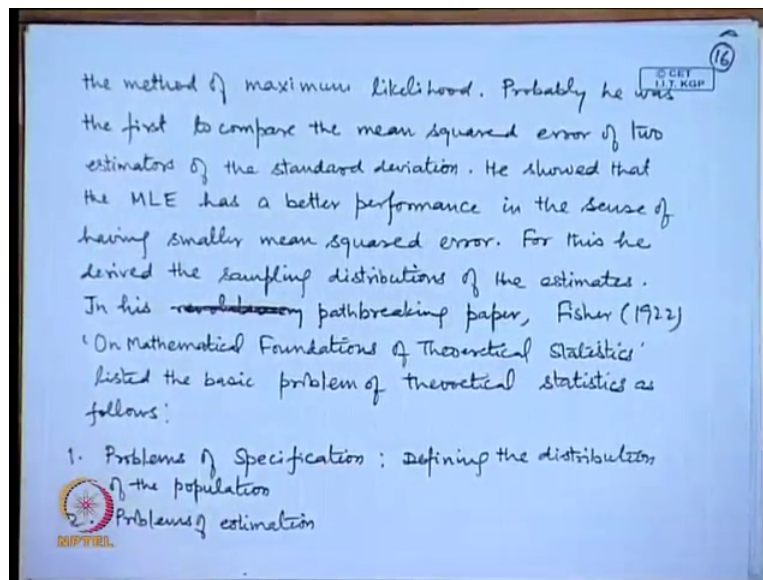 16
© CET
I.I.T. KGP
the method of maximum likelihood. Probably he was
the first to compare the mean squared error of two
estimators of the standard deviation. He showed that
the MLE has a better performance in the sense of
having smaller mean squared error. For this he
derived the sampling distributions of the estimates.
In his pathbreaking paper, Fisher (1922)
'On Mathematical Foundations of Theoretical Statistics'
listed the basic problem of theoretical statistics as
follows:
1. Problems of Specification : Defining the distribution
of the population
2. Problems of estimation
NPTEL